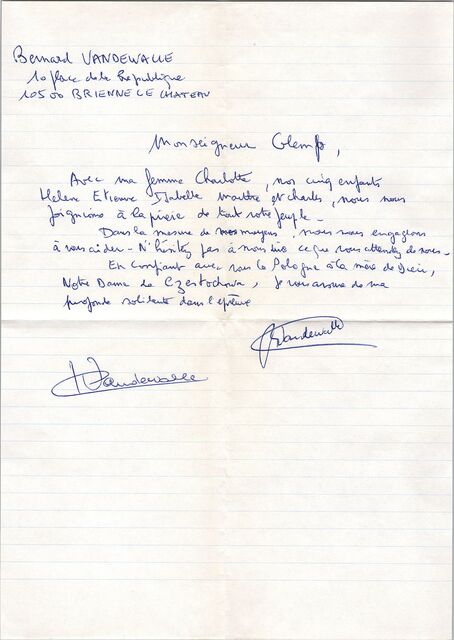 Bernard VANDEWALLE
10 place de la République
10500 BRIENNE LE CHATEAU
Monseigneur Glemp,
Avec ma femme Charlotte, nos cinq enfants
Hélène Etienne Isabelle Marthe et Charles, nous nous
joignons à la prière de tout votre peuple -
Dans la mesure de nos moyens, nous nous engageons
à vous aider - N'hésitez pas à nous dire ce que vous attendez de nous -
En confiant avec vous la Pologne à la mère de Dieu,
Notre Dame de Czestochowa, je vous assure de ma
profonde solidarité dans l'épreuve
Vandewalle
Vandewalle